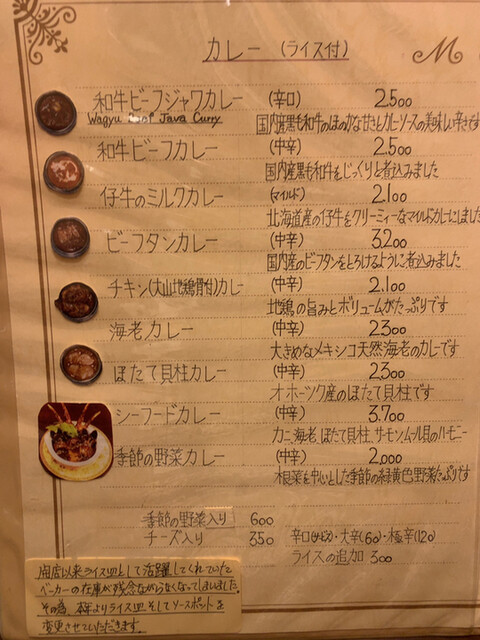 カレー (ライス付)
M
和牛ビーフジャワカレー (辛口) 2.500
Wagyu Beef Java Curry 国内産黒毛和牛のほのかな甘さとカレーソースの美味しい辛さです
和牛ビーフカレー (中辛) 2.500
国内産黒毛和牛をじっくりと煮込みました
仔牛のミルクカレー (マイルド) 2.100
北海道産の仔牛をクリーミィーなマイルドカレーにしました
ビーフタンカレー (中辛) 3.200
国内産のビーフタンをとろけるように煮込みました
チキン(大山地鶏骨付)カレー (中辛) 2.100
地鶏の旨みとボリュームがたっぷりです
海老カレー (中辛) 2.300
大きめなメキシコ天然海老のカレーです
ほたて貝柱カレー (中辛) 2.300
オホーツク産のほたて貝柱です
シーフードカレー (中辛) 3.700
カニ、海老、ほたて貝柱、サーモン、ムール貝のハーモニー
季節の野菜カレー (中辛) 2,000
根菜を中心とした季節の緑黄色野菜たっぷりです
季節の野菜入り 600
チーズ入り 350 辛口・大辛(60)・極辛(120)
ライスの追加 300
開店以来ライス皿として活躍してくれていた
ベーカーの在庫が残念ながらなくなってしまいました。
その為、よりライス皿そしてソースポットを
変更させていただきます。